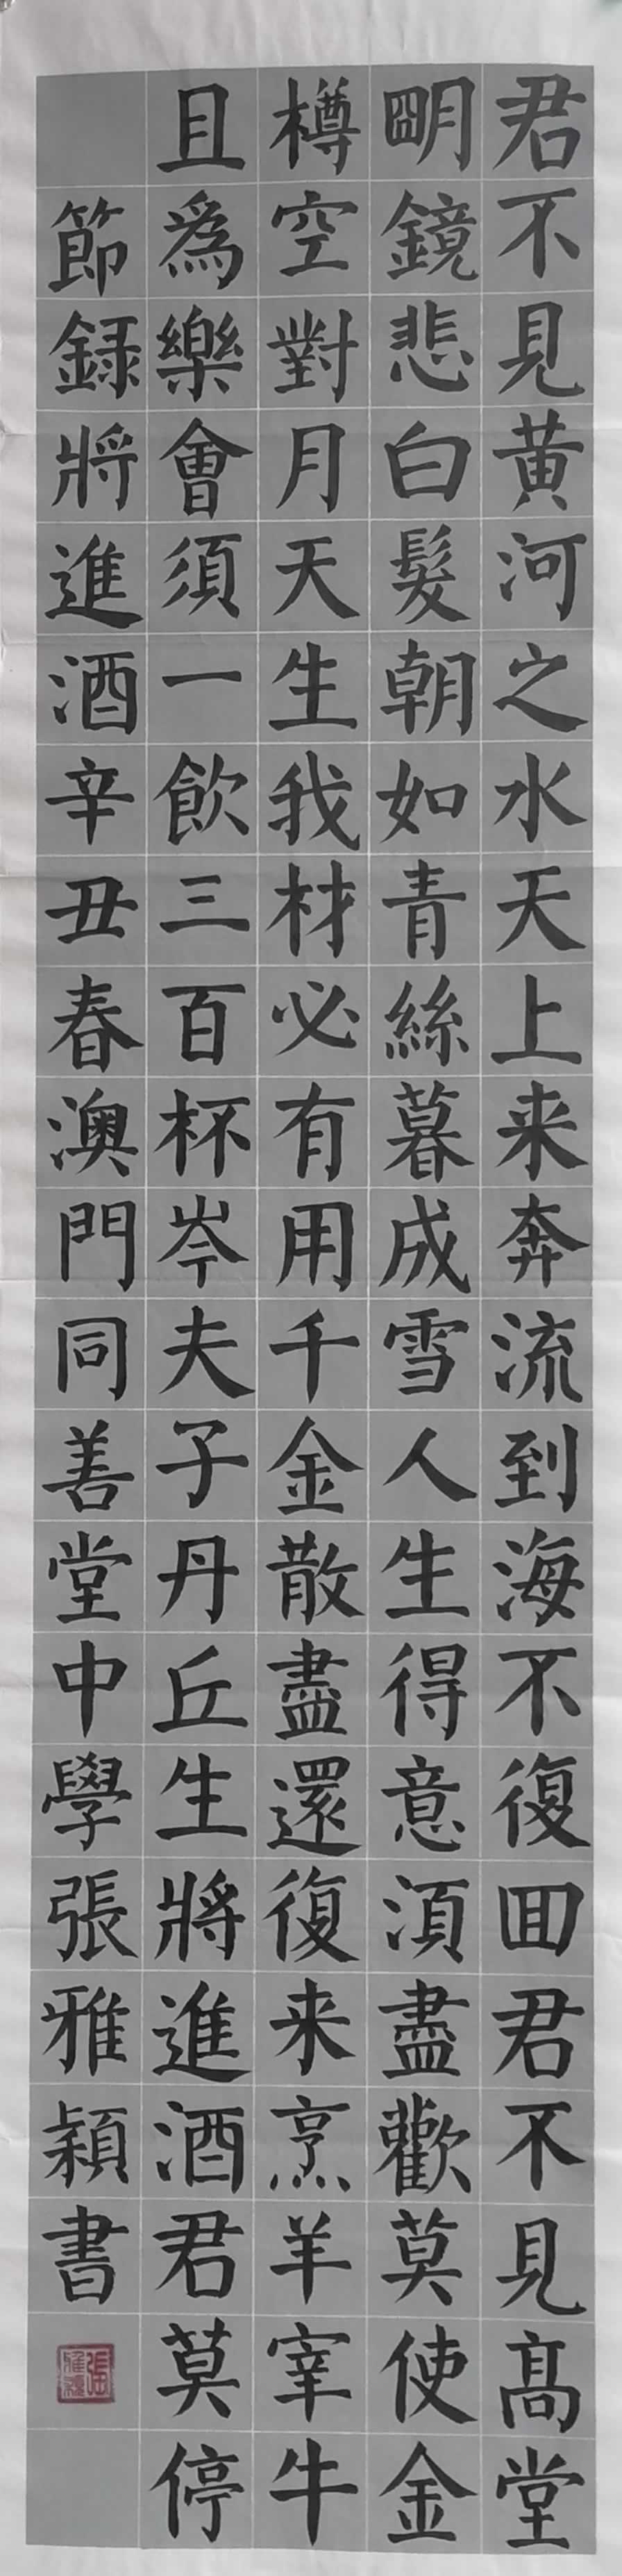 君不見黄河之水天上来奔流到海不復囬君不見髙堂
眀鏡悲白髮朝如青絲暮成雪人生得意湏盡歡莫使金
樽空對月天生我材必有用千金散盡還復来烹羊宰牛
且為樂會須一飲三百杯岑夫子丹丘生將進酒君莫停
節録將進酒辛丑春澳門同善堂中學張雅穎書
張雅穎